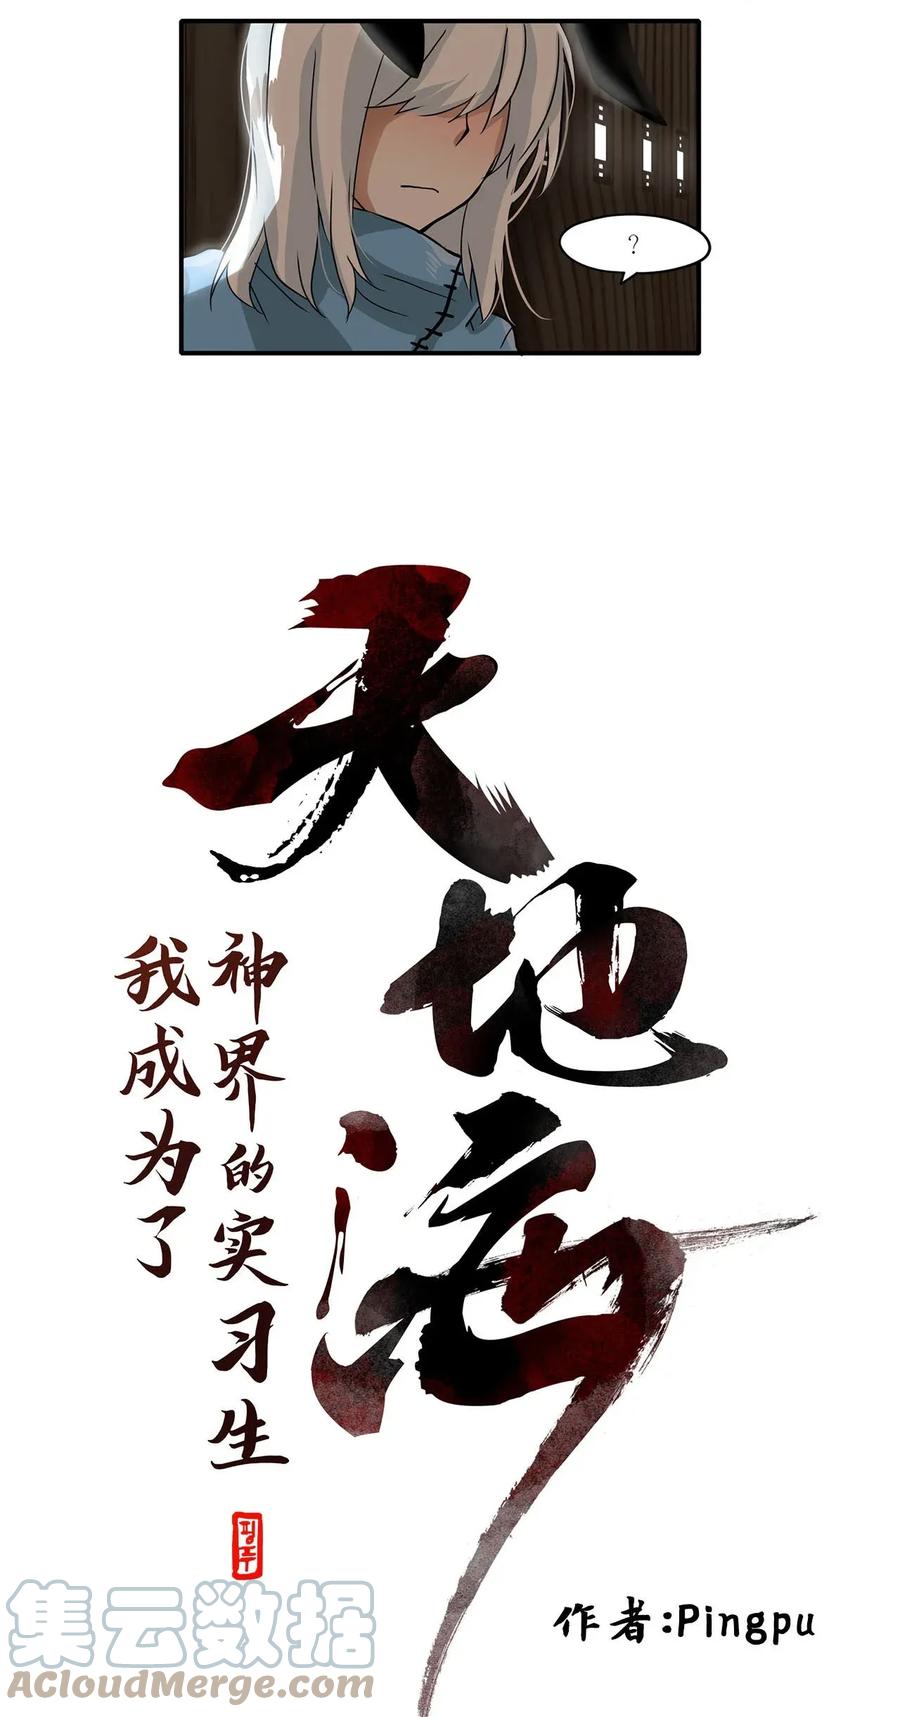 ?
天地海
我成为了
神界的实习生
핑푸
作者:Pingpu
集云数据
AcloudMerge.com